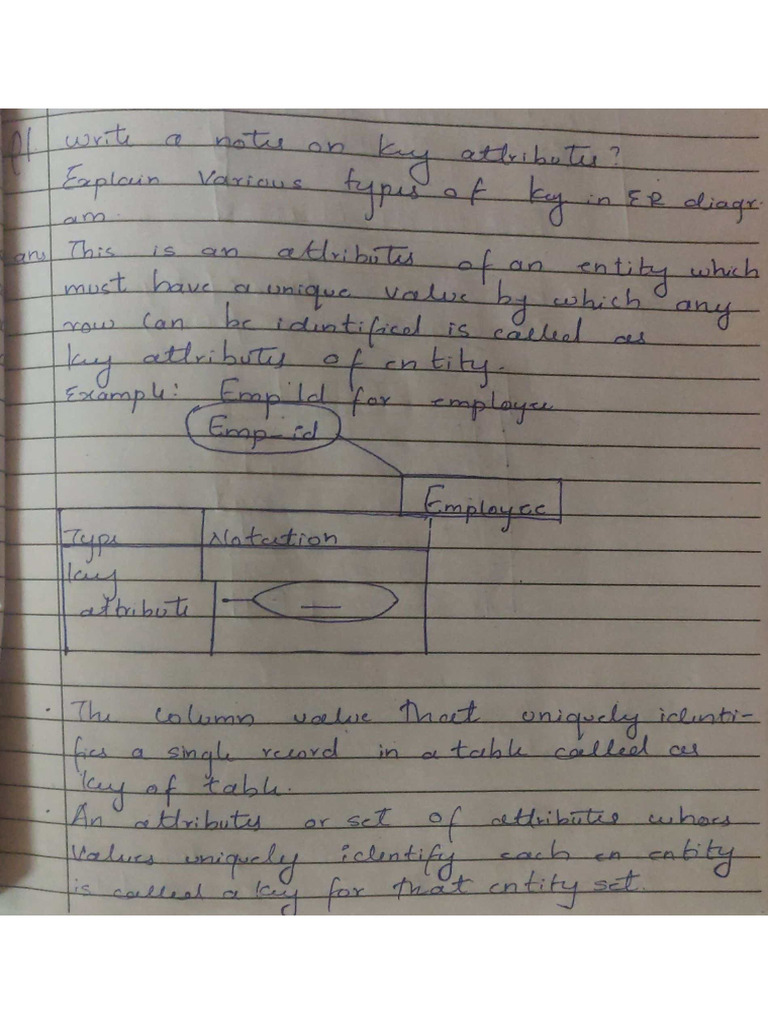 Q1 write a notes on key attributes?
Explain various types of key in ER diagr-
am.
ans This is an attributes of an entity which
must have a unique value by which any
row can be identified is called as
key attributes of entity.
Example: Emp Id for employee
Emp-id
Employee
Type Notation
key
attribute
. The column value that uniquely identi-
fies a single record in a table called as
key of table.
. An attributes or set of attributes whoes
values uniquely identify each en entity
is called a key for that entity set.